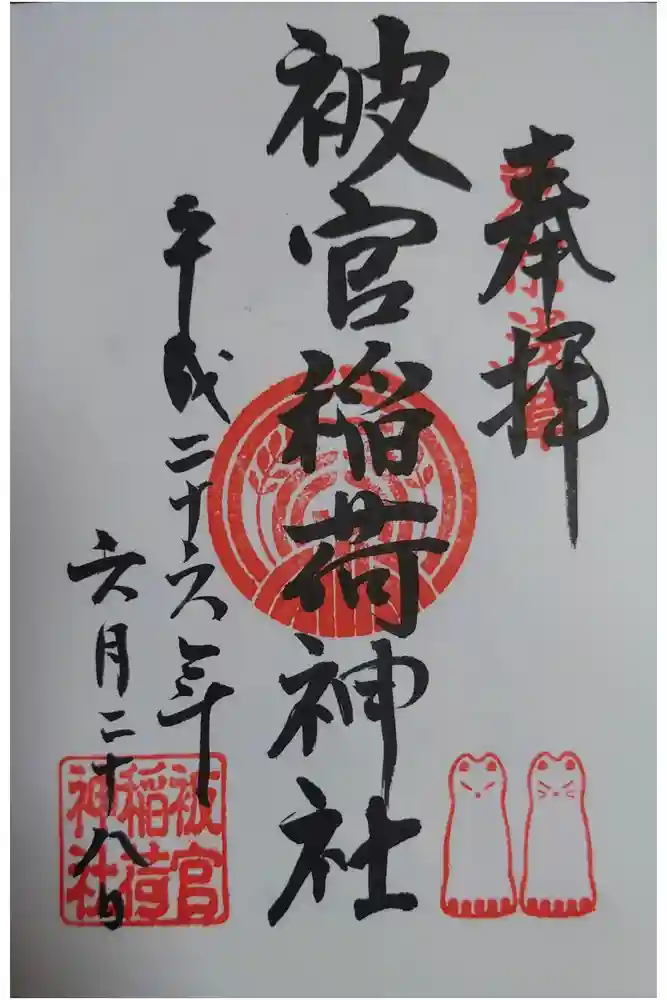 奉拝
被官稲荷神社
平成二十六年
六月二十八日
被官
稲荷
神社